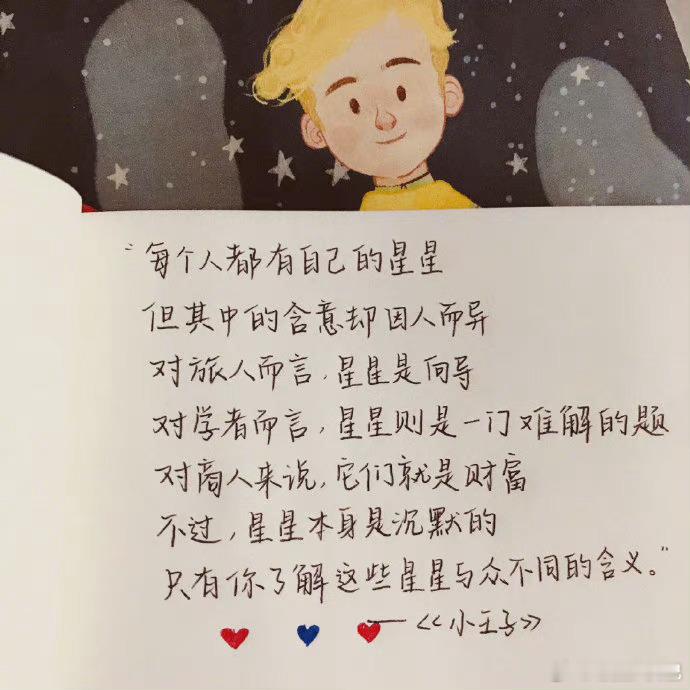 "每个人都有自己的星星
但其中的含意却因人而异
对旅人而言,星星是向导
对学者而言,星星则是一门难解的题
对商人来说,它们就是财富
不过,星星本身是沉默的
只有你了解这些星星与众不同的含义。"
——《小王子》